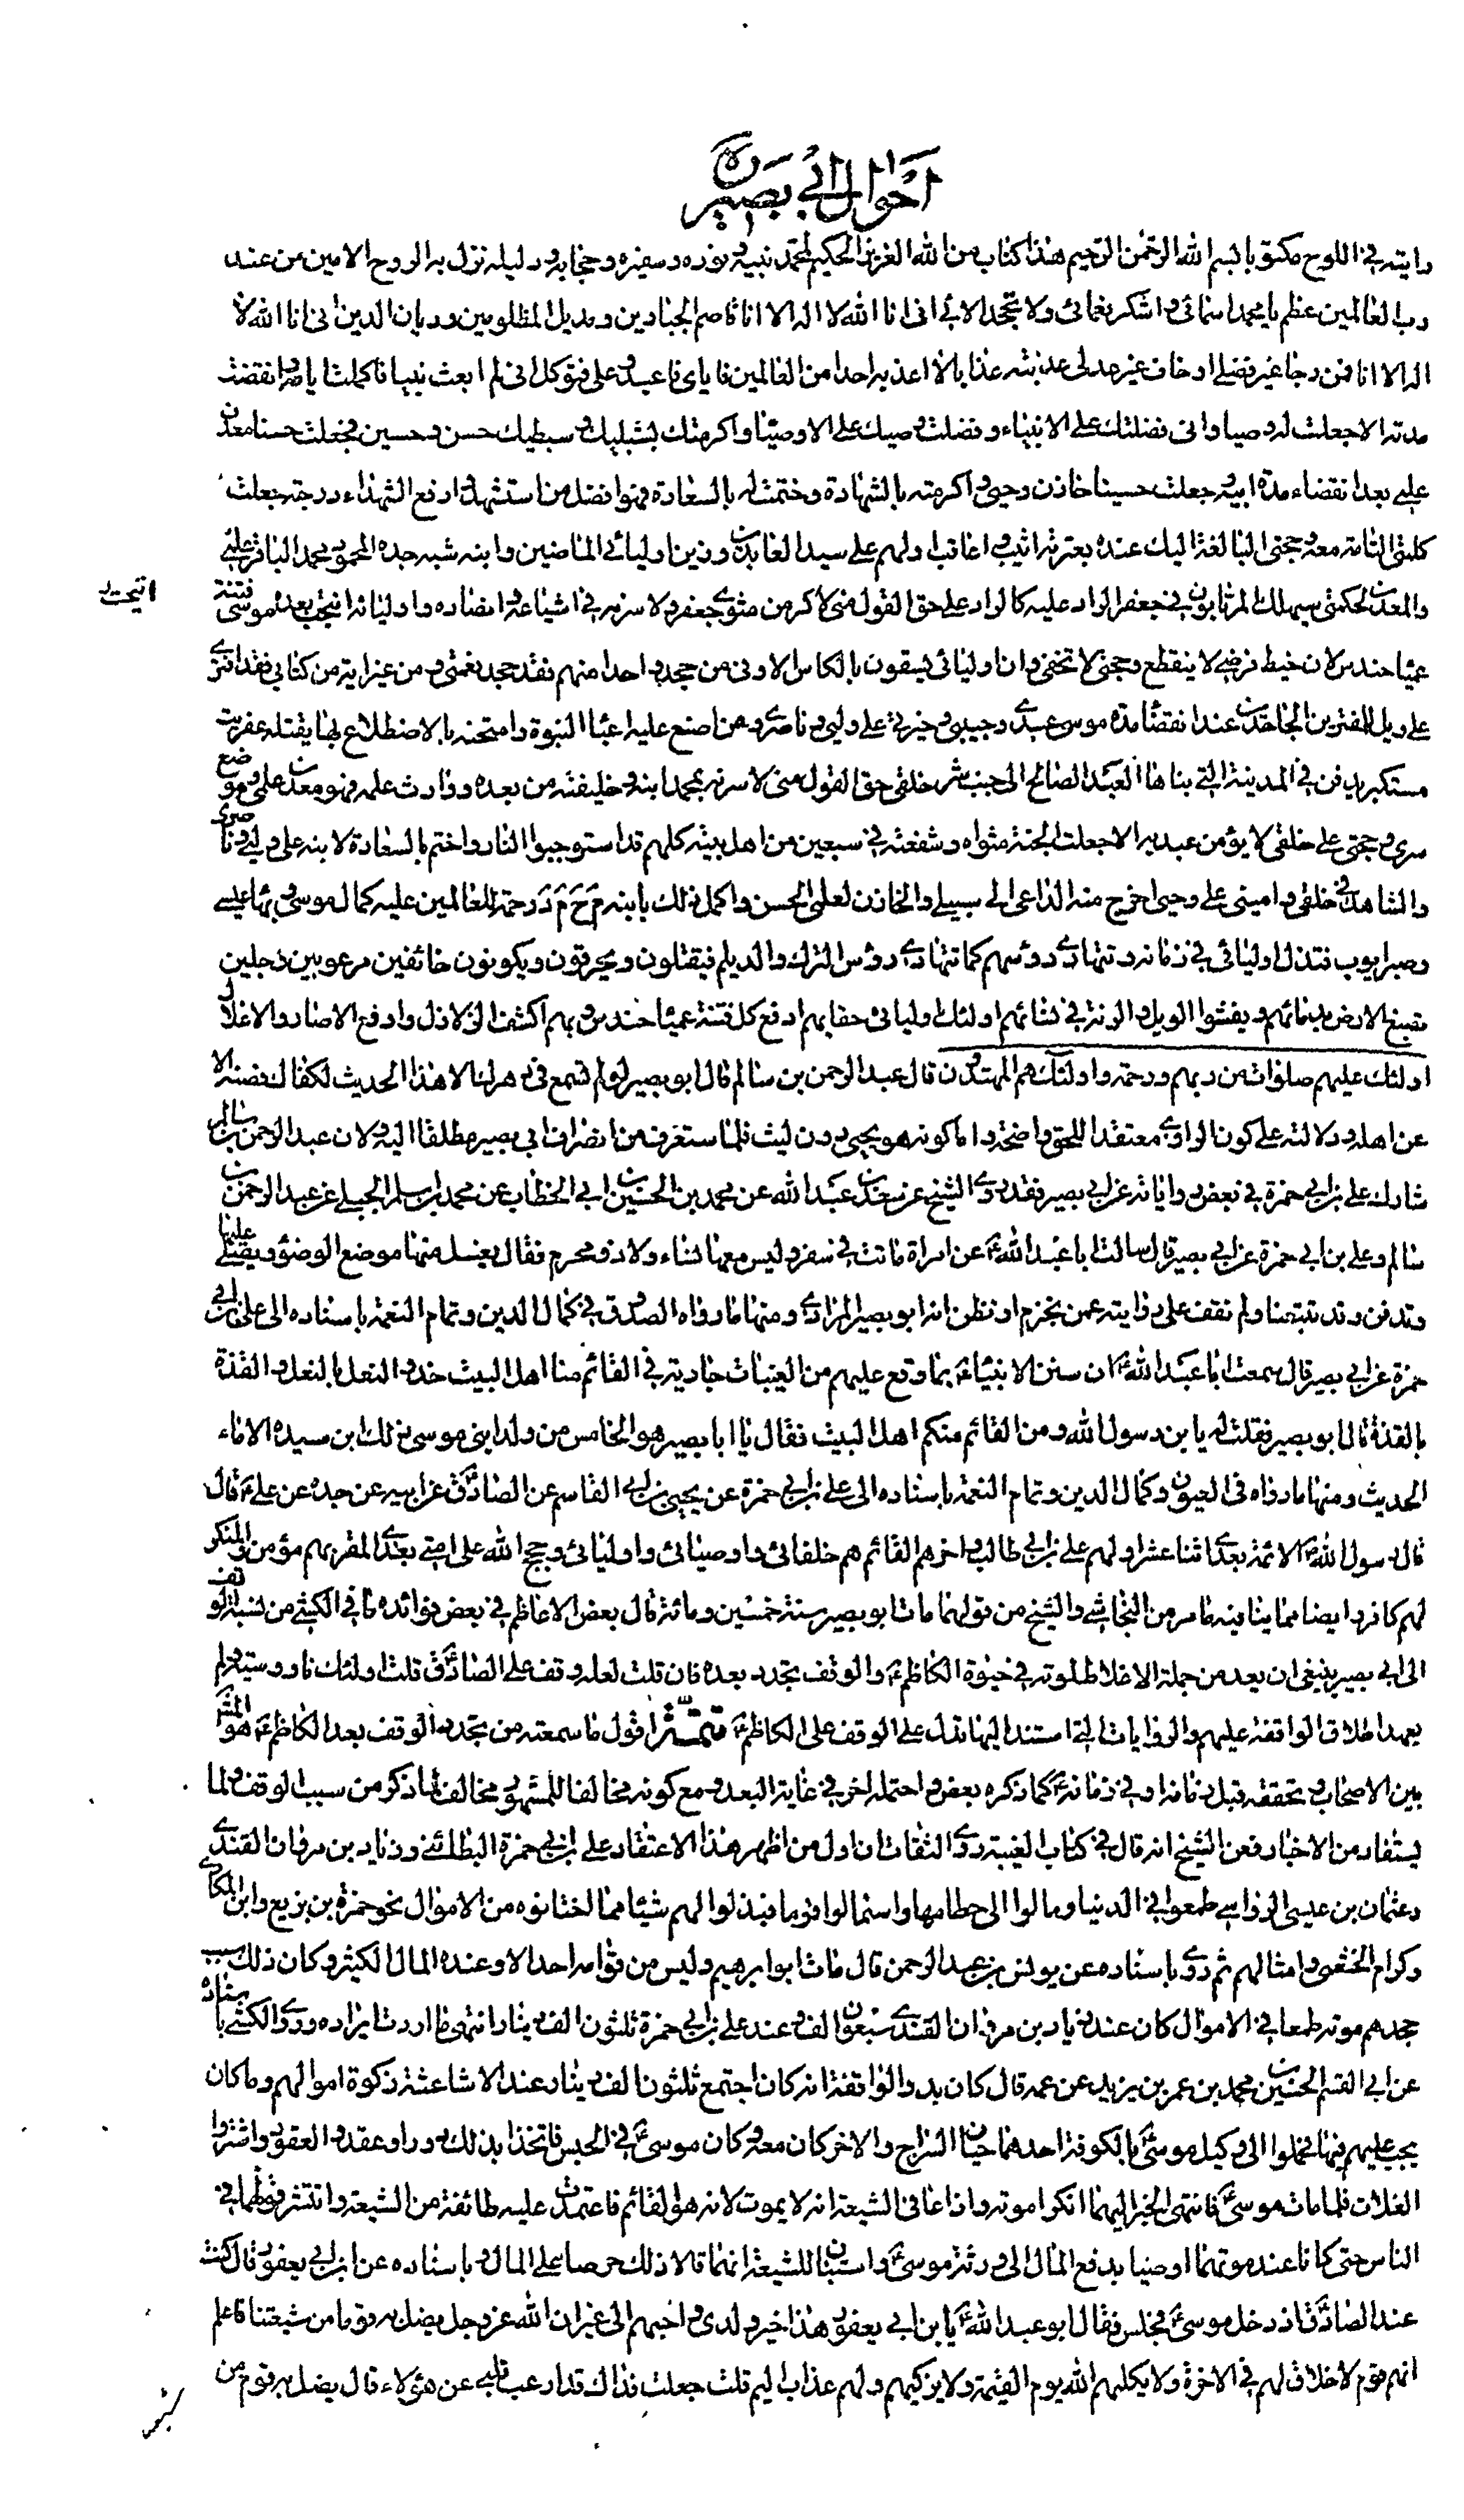 احوال ابي بصير
رايته في اللوح مكتوبا بسم الله الرحمن الرحيم هذا كتاب من الله العزيز الحكيم لمحمد نبيه ونوره وسفيره وحجابه ودليله نزل به الروح الامين من عند
رب العالمين عظم يا محمد اسمائي واشكر نعمائي ولا تجحد الائي اني انا الله لا اله الا انا قاصم الجبارين ومديل المظلومين وديان الدين اني انا الله لا
اله الا انا فمن رجا غير فضلي او خاف غير عدلي عذبته عذابا لا اعذبه احدا من العالمين فاياي فاعبد وعلي فتوكل اني لم ابعث نبيا فاكملت ايامه وانقضت
مدته الا جعلت له وصيا واني فضلتك على الانبياء وفضلت وصيك على الاوصياء واكرمتك بشبليك وسبطيك حسن وحسين فجعلت حسنا معدن
علمي بعد انقضاء مدة ابيه وجعلت حسينا خازن وحيي واكرمته بالشهادة وختمت له بالسعادة فهو افضل من استشهد وارفع الشهداء درجته جعلت
كلمتي التامة معه وحجتي البالغة اليك عنده بعترته اثيب واعاقب اولهم علي سيد العابدين وزين اوليائي الماضين وابنه شبه جده المحمود محمد الباقر علمي
والمعدن لحكمتي سيهلك المرتابون في جعفر الراد عليه كالراد علي حق القول مني لاكرمن مثوى جعفر ولاسرنه في اشياعه وانصاره واوليائه انتجب بعده موسى فتنة
انتجت
عميا حندس لان خيط فرضي لا ينقطع وحجتي لا تخفى وان اوليائي يسقون بالكاس الاوفى من جحد واحدا منهم فقد جحد نعمتي ومن غير اية من كتابي فقد افترى
علي ويل للمفترين الجاحدين عند انقضا مدة موسى عبدي وحبيبي وخيرتي علي وليي وناصري ومن اضع عليه اعباا النبوة وامتحنه بالاضطلاع بها يقتله عفريت
مستكبر يدفن في المدينة التي بناها العبد الصالح الى جنب شر خلقي حق القول مني لاسرنه بمحمد ابنه وخليفته من بعده ووارث علمه فهو معدن علمي وموضع
سري وحجتي على خلقي لا يؤمن عبد به الا جعلت الجنة مثواه وشفعته في سبعين من اهل بيته كلهم قد استوجبوا النار واختم بالسعادة لابنه علي وليي وناصري
والشاهد في خلقي واميني على وحيي اخرج منه الداعي الى سبيلي والخازن لعلمي الحسن واكمل ذلك بابنه م ح م د رحمة للعالمين عليه كمال موسى وبهاء عيسى
وصبر ايوب فتذل اوليائي في زمانه وتتهادى رؤسهم كما تتهادى رؤس الترك والديلم فيقتلون ويحرقون ويكونون خائفين مرعوبين وجلين
تصبغ الارض بدمائهم ويفشوا الويل والرنة في نسائهم اولئك اوليائي حقا بهم ادفع كل فتنة عميا حندس وبهم اكشف الزلازل وادفع الاصار والاغلال
اولئك عليهم صلوات من ربهم ورحمة واولئك هم المهتدون قال عبد الرحمن بن سالم قال ابو بصير لو لم تسمع في دهرك الا هذا الحديث لكفاك فصنه الا
عن اهله ودلالته على كون الراوي معتقدا للحق واضحة واما كونه هو يحيى دون ليث فلما ستعرف من انصراف ابي بصير مطلقا اليه ولان عبد الرحمن بن سالم
شارك علي بن ابي حمزة في بعض رواياته عن ابي بصير فقد روى الشيخ عن سعد بن عبد الله عن محمد بن الحسين بن ابي الخطاب عن محمد بن اسلم الجبلي عن عبد الرحمن بن
سالم وعلي بن ابي حمزة عن ابي بصير قال سالت ابا عبد الله ع عن امراة ماتت في سفر وليس معها نساء ولا ذو محرم فقال يغسل منها موضع الوضوء ويصلى عليها
وتدفن وقد تتبعنا ولم نقف على روايته عمن نجزم او نظن انه ابو بصير المرادي ومنها ما رواه الصدوق في كمال الدين وتمام النعمة باسناده الى علي بن ابي
حمزة عن ابي بصير قال سمعت ابا عبد الله ع ان سنن الانبياء ع بما وقع عليهم من الغيبات جارية في القائم منا اهل البيت حذو النعل بالنعل والقذة
بالقذة قال ابو بصير فقلت له يا بن رسول الله ومن القائم منكم اهل البيت فقال يا ابا بصير هو الخامس من ولد ابني موسى ذلك ابن سيدة الاماء
الحديث ومنها ما رواه في العيون وكمال الدين وتمام النعمة باسناده الى علي بن ابي حمزة عن يحيى بن ابي القاسم عن الصادق ع عن ابيه عن جده عن علي ع قال
قال رسول الله ص الائمة بعدي اثنا عشر اولهم علي بن ابي طالب واخرهم القائم هم خلفائي واوصيائي واوليائي وحجج الله على امتي بعدي المقر بهم مؤمن والمنكر
لهم كافر وايضا مما ينافيه ما مر من النجاشي والشيخ من قولهما مات ابو بصير سنة خمسين ومائة قال بعض الاعاظم في بعض فوائده ما في الكشي من نسبة الوقف
الى ابي بصير ينبغي ان يعد من جملة الاغلاط لموته في حيوة الكاظم ع والوقف تجدد بعده فان قلت لعله وقف على الصادق ع قلت اولئك ناووسية ولم
يعهد اطلاق الواقفة عليهم والروايات التي استند اليها تدل على الوقف على الكاظم ع تتمة اقول ما سمعته من تجدد الوقف بعد الكاظم ع هو المشهور
بين الاصحاب وتحققه قبل زمانه او في زمانه ع كما ذكره بعض واحتمله اخر في غاية البعد ومع كونه مخالفا للمشهور مخالف لما ذكر من سبب الوقف ولما
يستفاد من الاخبار فعن الشيخ انه قال في كتاب الغيبة روى الثقات ان اول من اظهر هذا الاعتقاد علي بن ابي حمزة البطائني وزياد بن مروان القندي
وعثمان بن عيسى الرواسي طمعوا في الدنيا ومالوا الى حطامها واستمالوا قوما فبذلوا لهم شيئا مما اختانوه من الاموال نحو حمزة بن بزيع وابن المكاري
وكرام الخثعمي وامثالهم ثم روى باسناده عن يونس بن عبد الرحمن قال مات ابو ابرهيم وليس من قوامه احد الا وعنده المال الكثير وكان ذلك سبب
جحدهم موته طمعا في الاموال كان عند زياد بن مروان القندي سبعون الف وعند علي بن ابي حمزة ثلثون الف دينار انتهى ما اردت ايراده وروى الكشي باسناده
عن ابي القسم الحسين بن محمد بن عمر بن يزيد عن عمه قال كان بدو الواقفة انه كان اجتمع ثلثون الف دينار عند الاشاعثة زكوة اموالهم وما كان
يجب عليهم فيها فحملوا الى وكيل موسى ع بالكوفة احدهما حيان السراج والاخر كان معه وكان موسى ع في الحبس فاتخذا بذلك دورا وعقدا العقود واشتروا
الغلات فلما مات موسى ع فانتهى الخبر اليهما انكرا موته واذاعا في الشيعة انه لا يموت لانه هو القائم فاعتمدت عليه طائفة من الشيعة وانتشر قولهما في
الناس حتى كانا عند موتهما اوصيا بدفع المال الى ورثة موسى ع واستبان للشيعة انهما قالا ذلك حرصا على المال وباسناده عن ابن ابي يعفور قال كنت
عند الصادق ع اذ دخل موسى ع فجلس فقال ابو عبد الله ع يا بن ابي يعفور هذا خير ولدي واحبهم الي غير ان الله عز وجل يضل به قوما من شيعتنا فاعلم
انهم قوم لا خلاق لهم في الاخرة ولا يكلمهم الله يوم القيمة ولا يزكيهم ولهم عذاب اليم قلت جعلت فداك قد ارعب قلبي عن هؤلاء قال يضل به قوم من